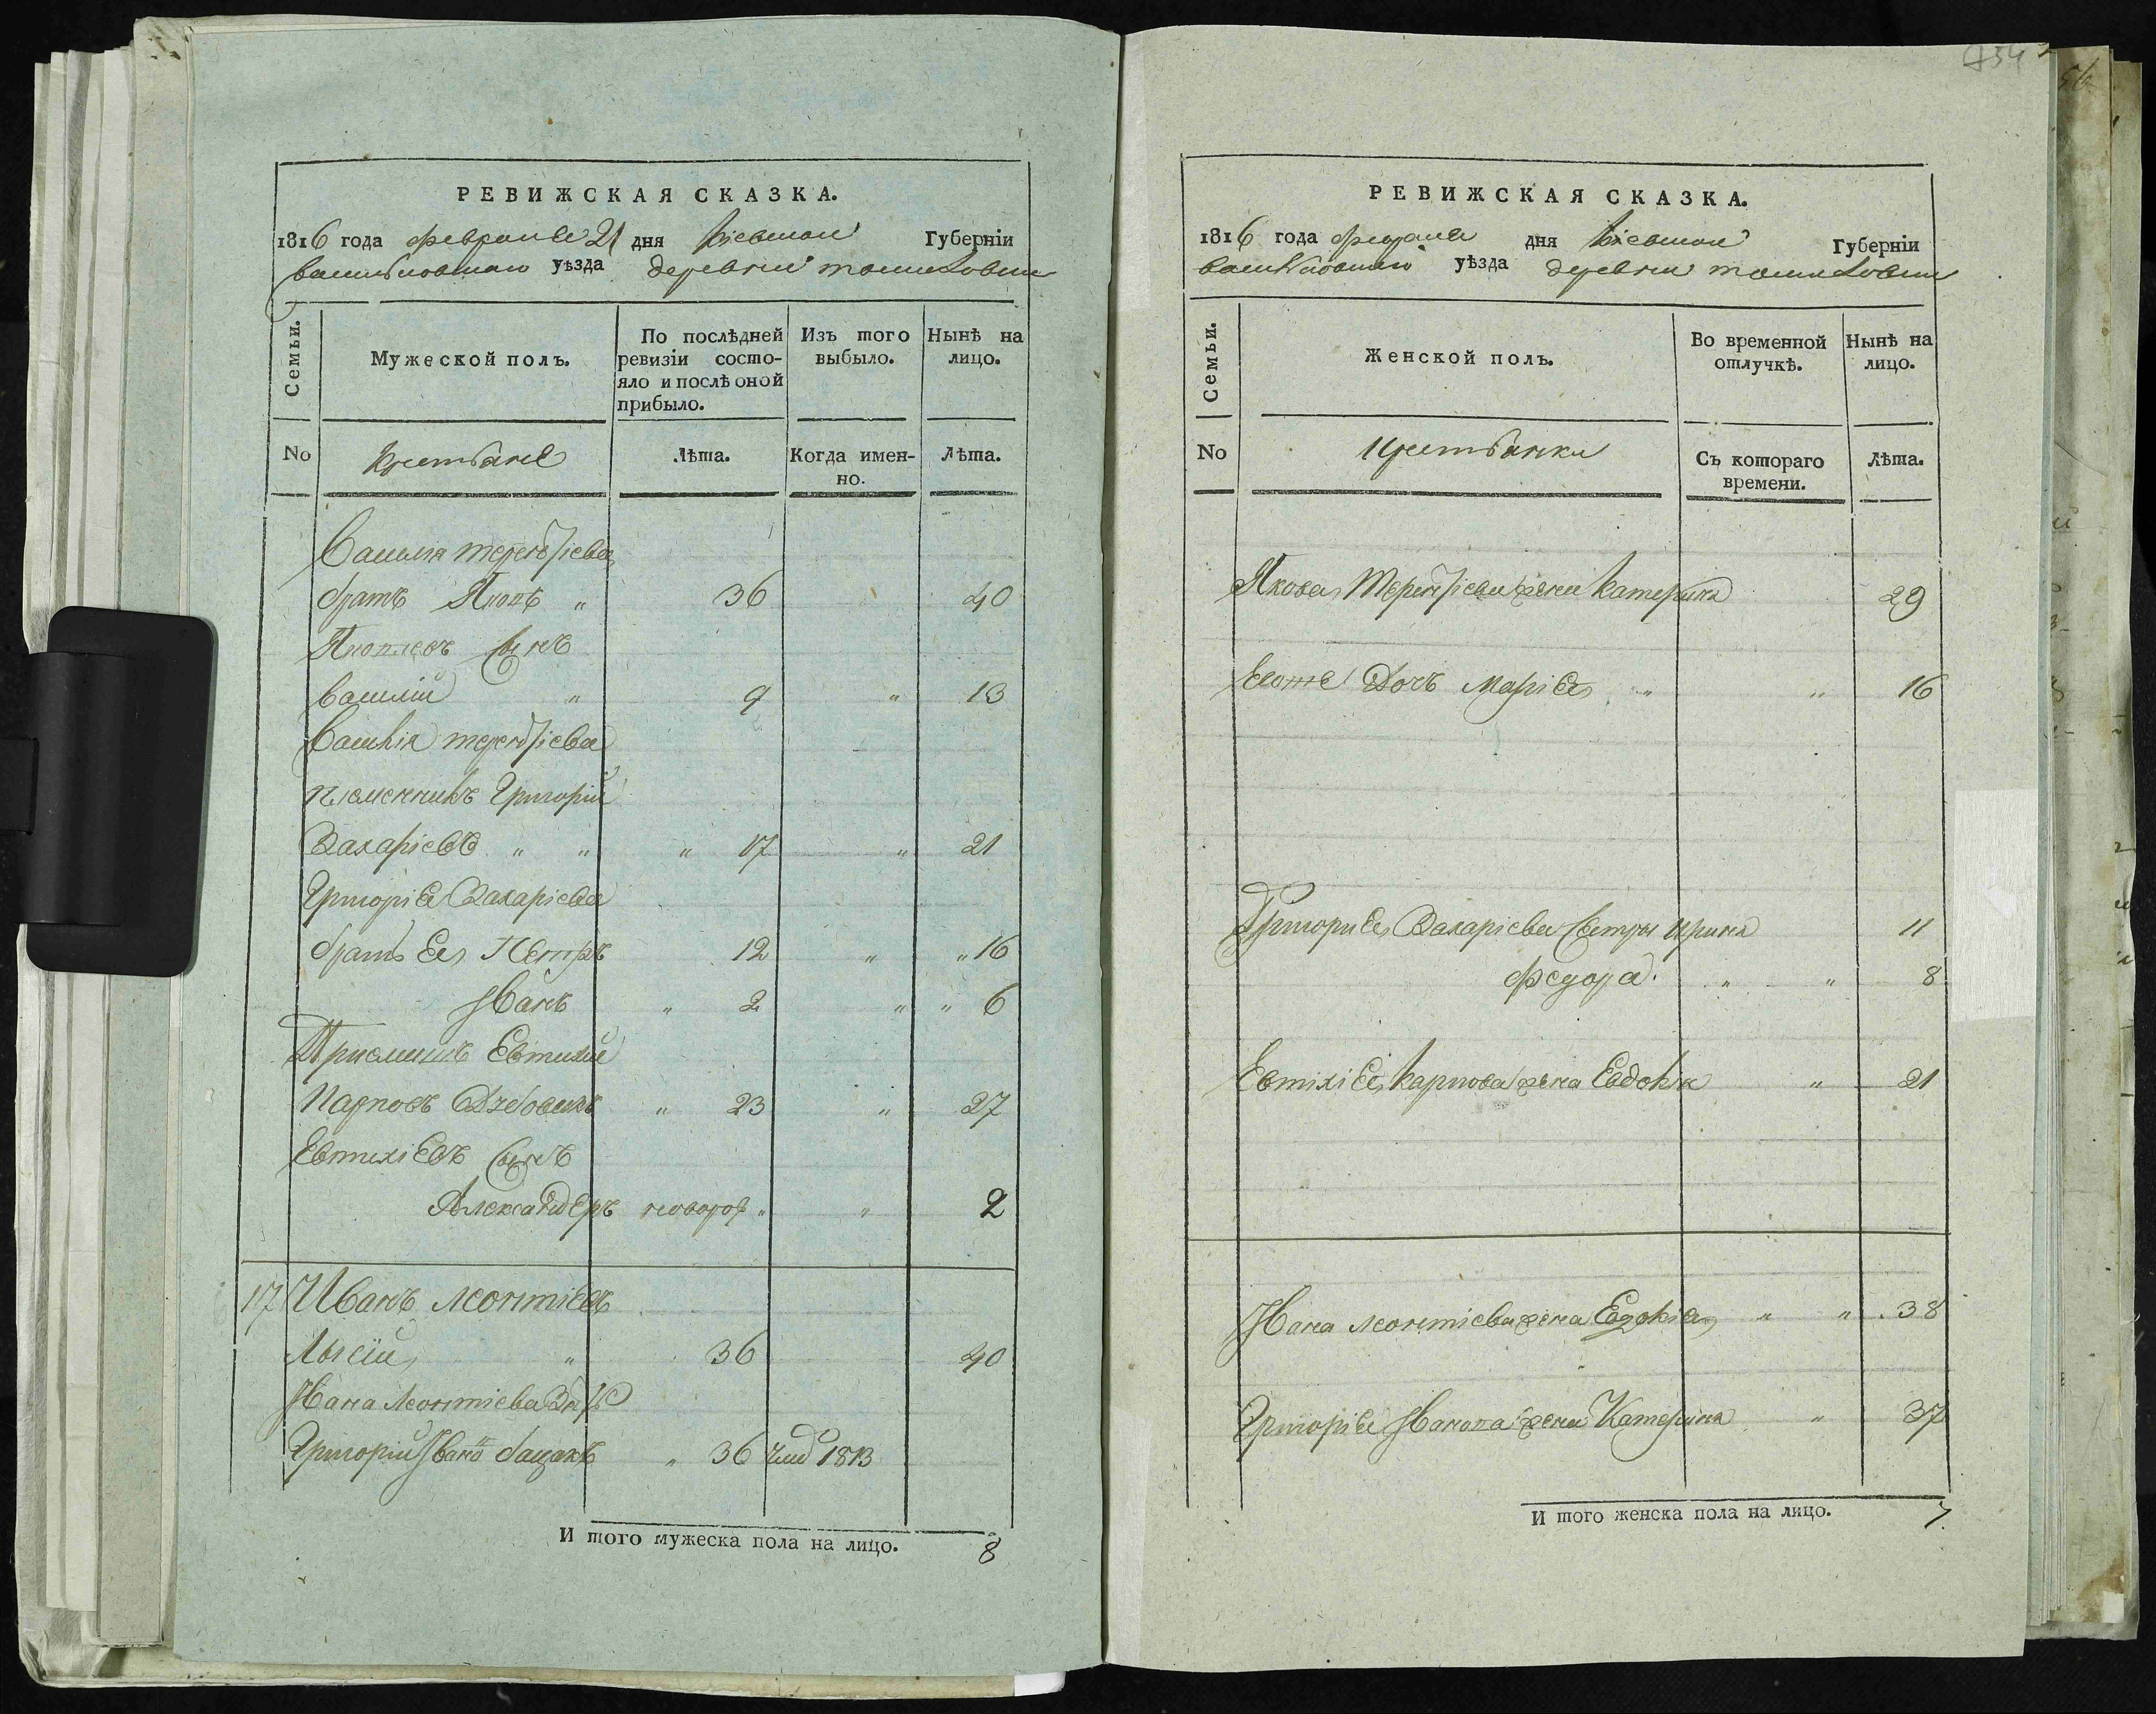 РЕВИЖСКАЯ СКАЗКА.
1816 года февраля 21 дня Кіевской Губерніи
васильковскаго уѣзда деревни
Семьи.
Мужеской полъ.
По послѣдней ревизіи состо-
яло и послѣ оной прибыло.
Изъ того выбыло.
Нынѣ на лицо.
No
Крестьяне
Лѣта.
Когда имен-
но.
Лѣта.
Василія терентіева
братъ Яковъ " 36 40
Яковлевъ сынъ
василій " 9 " 13
Василія терентіева
племенникъ Григорій
Захаріевъ " " " 17 " 21
Григорія Захаріева
братъ Ея Петръ 12 " " 16
Иванъ " 2 " " 6
Приемышъ Евтихий
Карповъ " 23 " 27
Евтихіевъ сынъ
Александеръ новорож " " 2
17 Иванъ леонтіевъ
Лысій " 36 40
Ивана Леонтіева зять
Григорій бацакъ " 36 1813
И того мужеска пола на лицо. 8
754
РЕВИЖСКАЯ СКАЗКА.
1816 года февраля дня Кіевской Губерніи
васильковскаго уѣзда деревни
Семьи.
Женской полъ.
Во временной отлучкѣ.
Нынѣ на лицо.
No
Крестьянки
Съ котораго времени.
Лѣта.
Якова Терентіева жена Катерина 29
Егоже Дочъ Марія " " 16
Григория Захаріева сестры ирина 11
федора. " " 8
Евтихія Карпова жена Евдокія " 21
Ивана леонтіева жена Евдокія " " 38
Григорія Иванова жена Катерина " 37
И того женска пола на лицо. 7